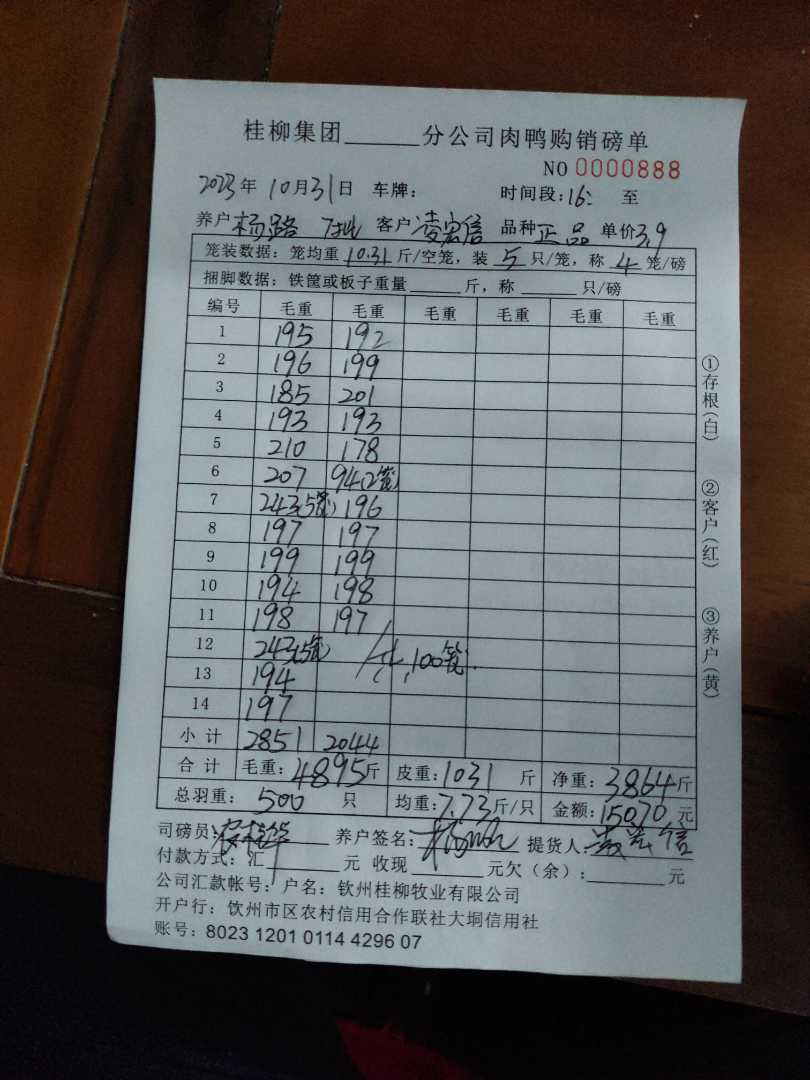 桂柳集团______分公司肉鸭购销磅单
NO 0000888
2023年 10月31日 车牌: 时间段:16: 至
养户 杨路 7批 客户 凌宏信 品种 正品 单价 3.9
笼装数据: 笼均重 10.31 斤/空笼, 装 5 只/笼, 称 4 笼/磅
捆脚数据: 铁筐或板子重量______斤, 称______只/磅
编号 毛重 毛重 毛重 毛重 毛重 毛重
1 195 192
2 196 199
3 185 201
4 193 193
5 210 178
6 207 94(2笼)
7 243(5笼) 196
8 197 197
9 199 199
10 194 198
11 198 197
12 243(5笼) 共100笼.
13 194
14 197
小计 2851 2044
合计 毛重: 4895斤 皮重: 1031 斤 净重: 3864斤
总羽重: 500 只 均重: 7.73斤/只 金额: 15070 元
司磅员: 养户签名: 提货人: 凌宏信
付款方式: 汇______元 收现______元欠(余):______元
公司汇款帐号: 户名: 钦州桂柳牧业有限公司
开户行: 钦州市区农村信用合作联社大垌信用社
账号: 8023 1201 0114 4296 07
①存根(白)
②客户(红)
③养户(黄)